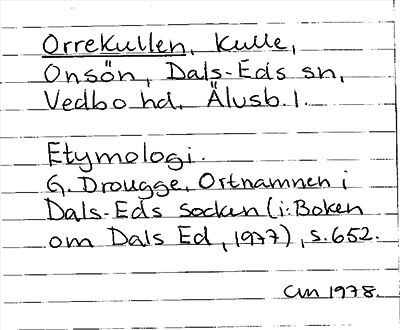 Orrekullen, kulle,
Onsön, Dals-Eds sn,
Vedbo hd, Älvsb. l.
Etymologi.
G. Drougge, Ortnamnen i
Dals-Eds socken (i: Boken
om Dals Ed, 1977), s. 652.
1978.